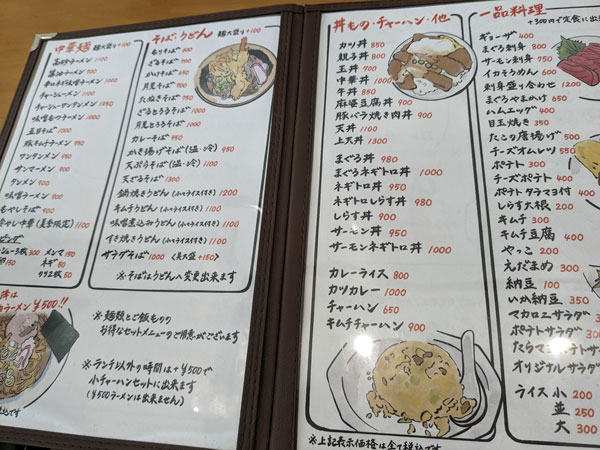 中華麺 麺大盛り+100
高砂ラーメン 1100
醤油ラーメン 700
キャベチャーシューメン 1100
チャーシューサンマーメン 1100
味噌もつラーメン 1100
五目そば 1100
豚キムチラーメン 950
ワンタンメン 950
サンマーメン 900
タンメン 900
味噌ラーメン 900
もやしそば 900
冷やし中華(夏季限定) 1100
メンマ 150
ネギ 50
のり2枚 50
ラーメン¥500!!
※麺類とご飯ものの
お得なセットメニューのご用意がございます
※ランチ以外の時間は+¥500で
小チャーハンセットに出来ます
(¥500ラーメンは出来ません)
そば・うどん 麺大盛り+100
もりそば 600
ざるそば 650
かけそば 650
月見そば 700
たぬきそば 700
ざるとろろそば 1000
月見とろろそば 1000
カレーそば 950
かき揚げそば(温・冷) 950
天ぷらそば(温・冷) 1100
天ざるそば 1300
鍋焼きうどん(小ライス付き) 1200
キムチうどん(小ライス付き) 1100
味噌煮込みうどん(小ライス付き) 1100
すき焼きうどん(小ライス付き) 1100
サラダそば 1000 <大盛+150>
※そばはうどんへ変更出来ます
丼もの・チャーハン・他
カツ丼 850
親子丼 800
玉丼 700
中華丼 1000
牛丼 850
麻婆豆腐丼 900
豚バラ焼き肉丼 900
天丼 1100
上天丼 1300
まぐろ丼 980
まぐろネギトロ丼 1000
ネギトロ丼 950
ネギトロしらす丼 980
しらす丼 900
サーモン丼 950
サーモンネギトロ丼 1000
カレーライス 800
カツカレー 1000
チャーハン 650
キムチチャーハン 900
※上記表示価格は全て税込です
一品料理
+300円で定食に出来
ギョーザ 400
まぐろ刺身 800
サーモン刺身 750
イカそうめん 600
刺身盛り合わせ 1200
まぐろやまかけ 650
ハムエッグ 400
目玉焼き 350
たこの唐揚げ 500
チーズオムレツ 550
ポテト 300
チーズポテト 400
ポテトタラマヨ付 400
しらす大根 200
キムチ 300
キムチ豆腐 400
やっこ 200
えだまめ 300
納豆 100
いか納豆 350
マカロニサラダ
ポテトサラダ
オリジナルサラダ
ライス 小 200
並 250
大 300